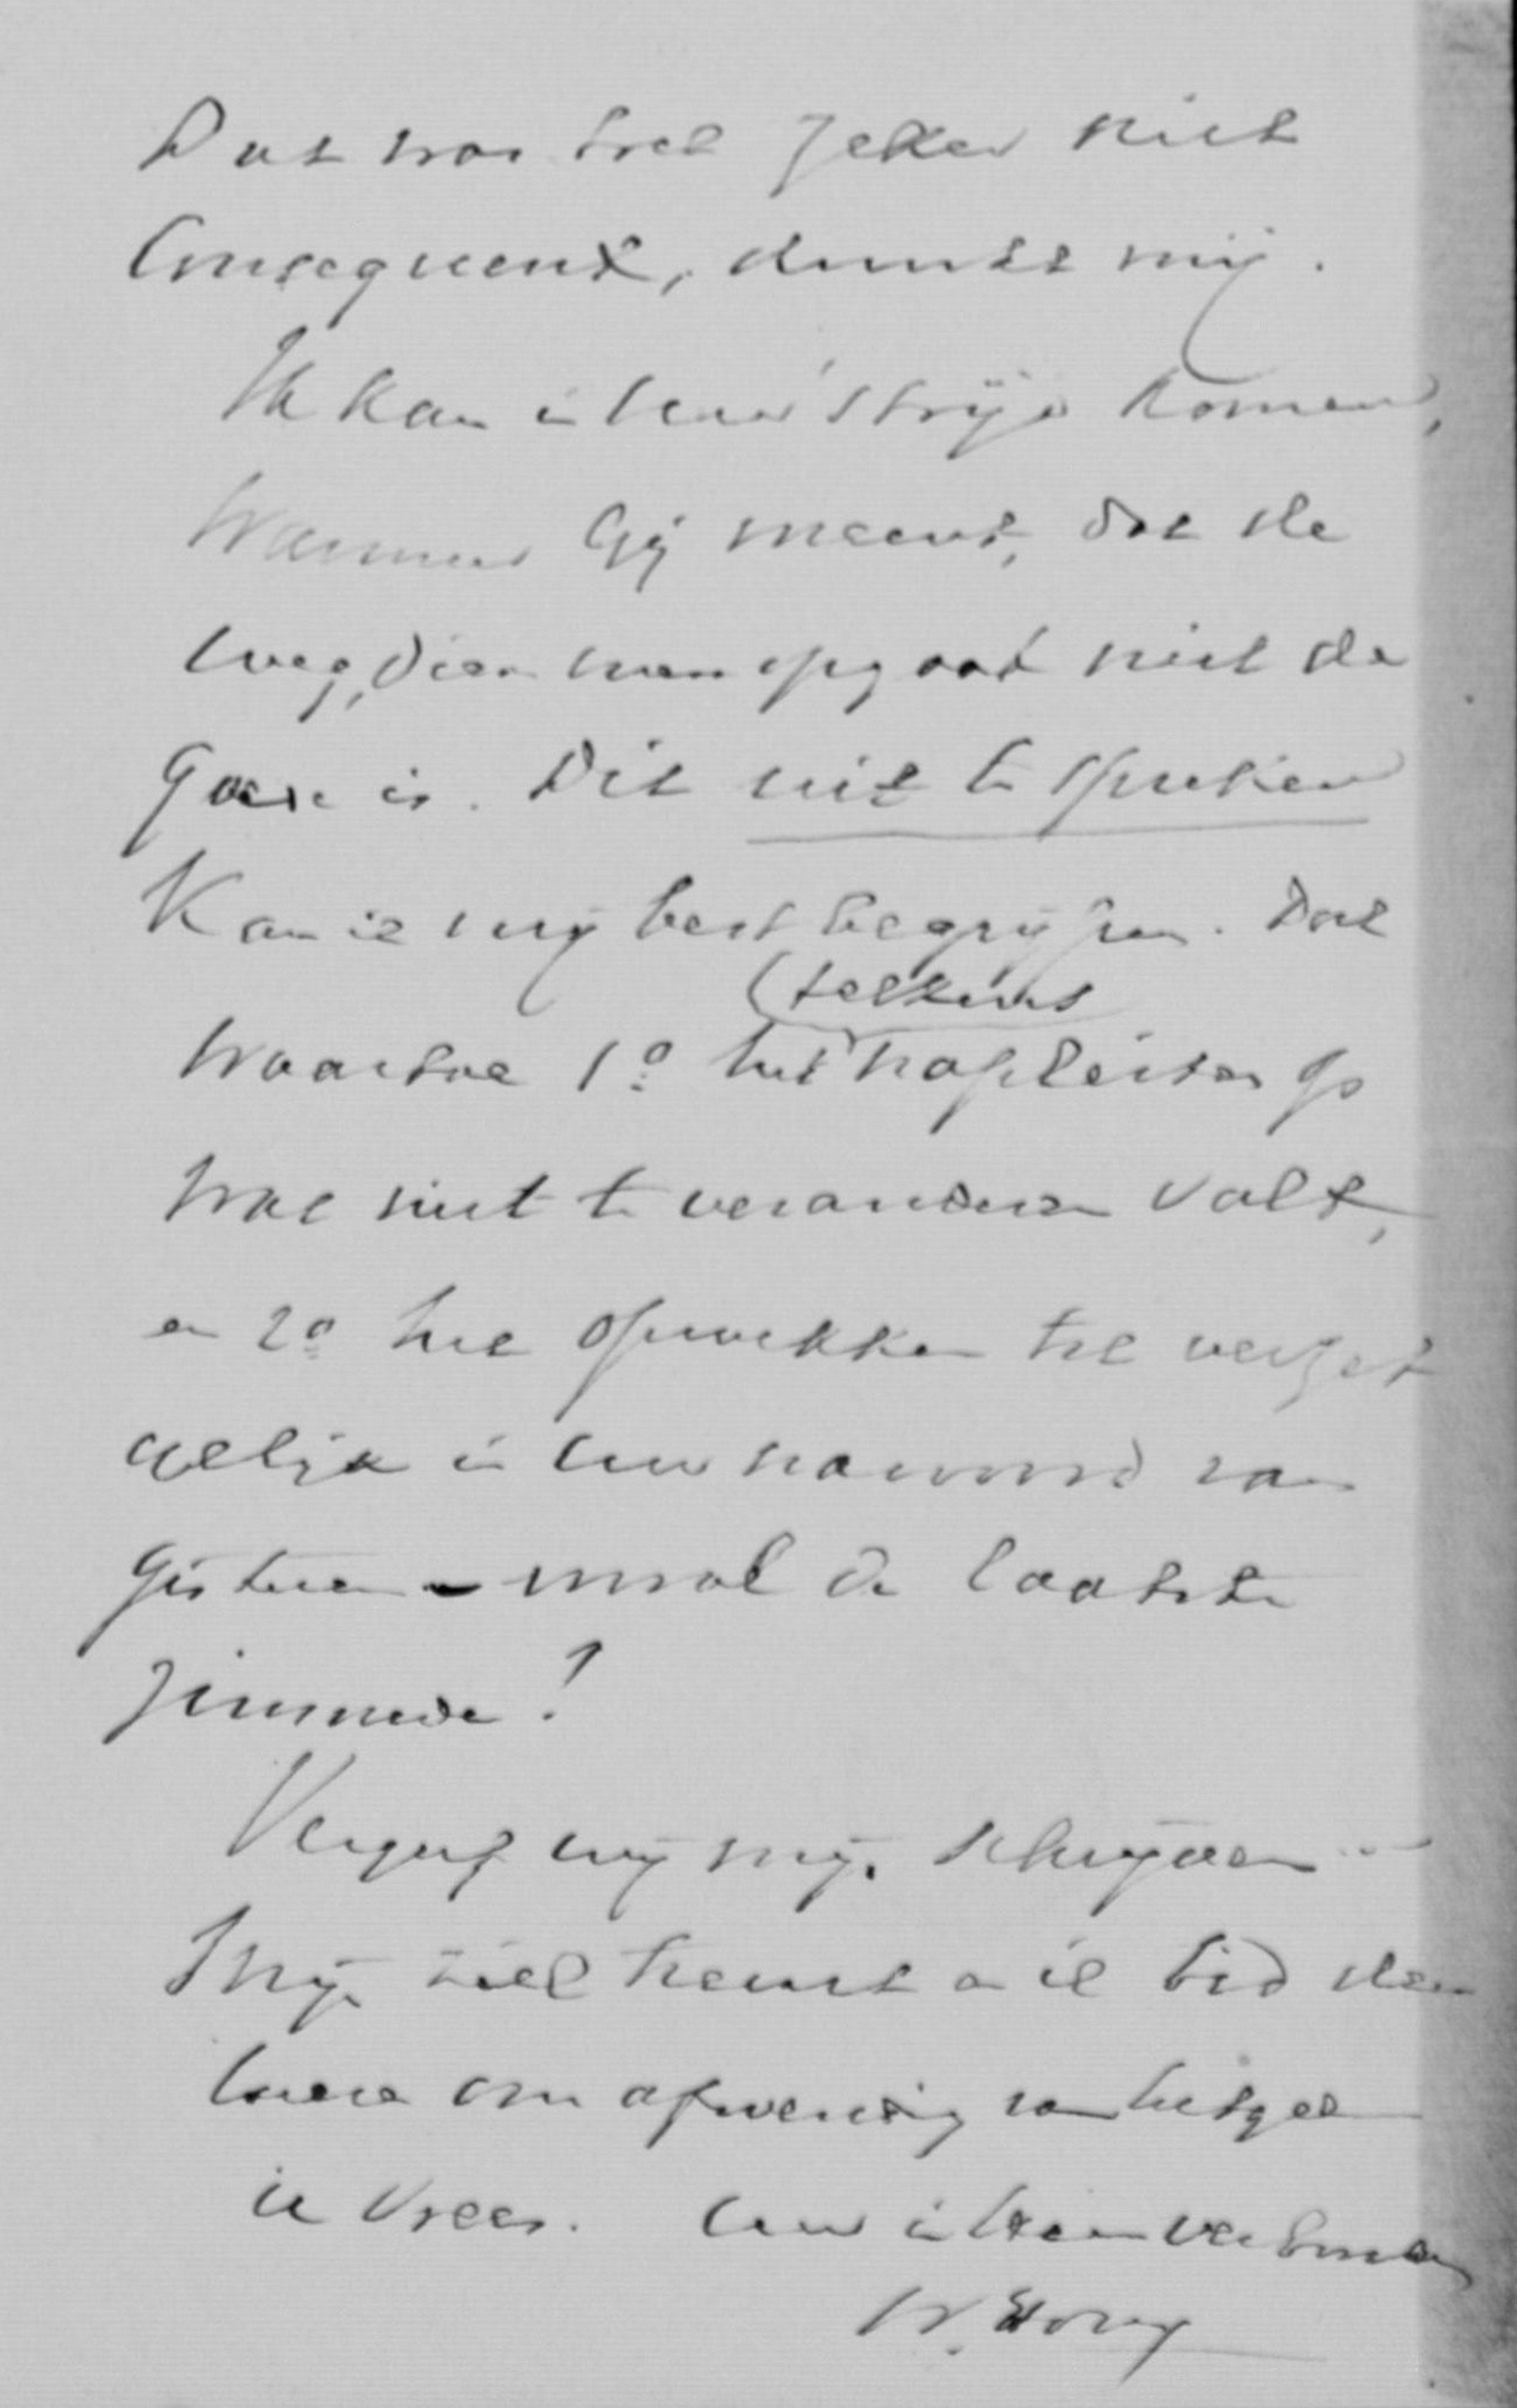 Dat was toch zeker niet
Consequent, dunkt mij.
Ik kan in Uw strijd komen,
Wanneer Gij meent, dat de
weg, dien men opgaat niet de
goede is. Dit uit te spreken
Kan ik mij best begrijpen. Dat
(telkens
waartoe 1o het hopleiter op
wat niet te veranderen valt,
en 2o het opwekken tot verzet
gelijk in Uw nawoord van
gisteren - vooral de laatste
zinsnede!
Vergeef mij mijn schrijven ...
Mijn ziel treurt en ik bid den
Heere om afwending van hetgeen
ik vrees. Uw in Hem verbonden
W. Hovy